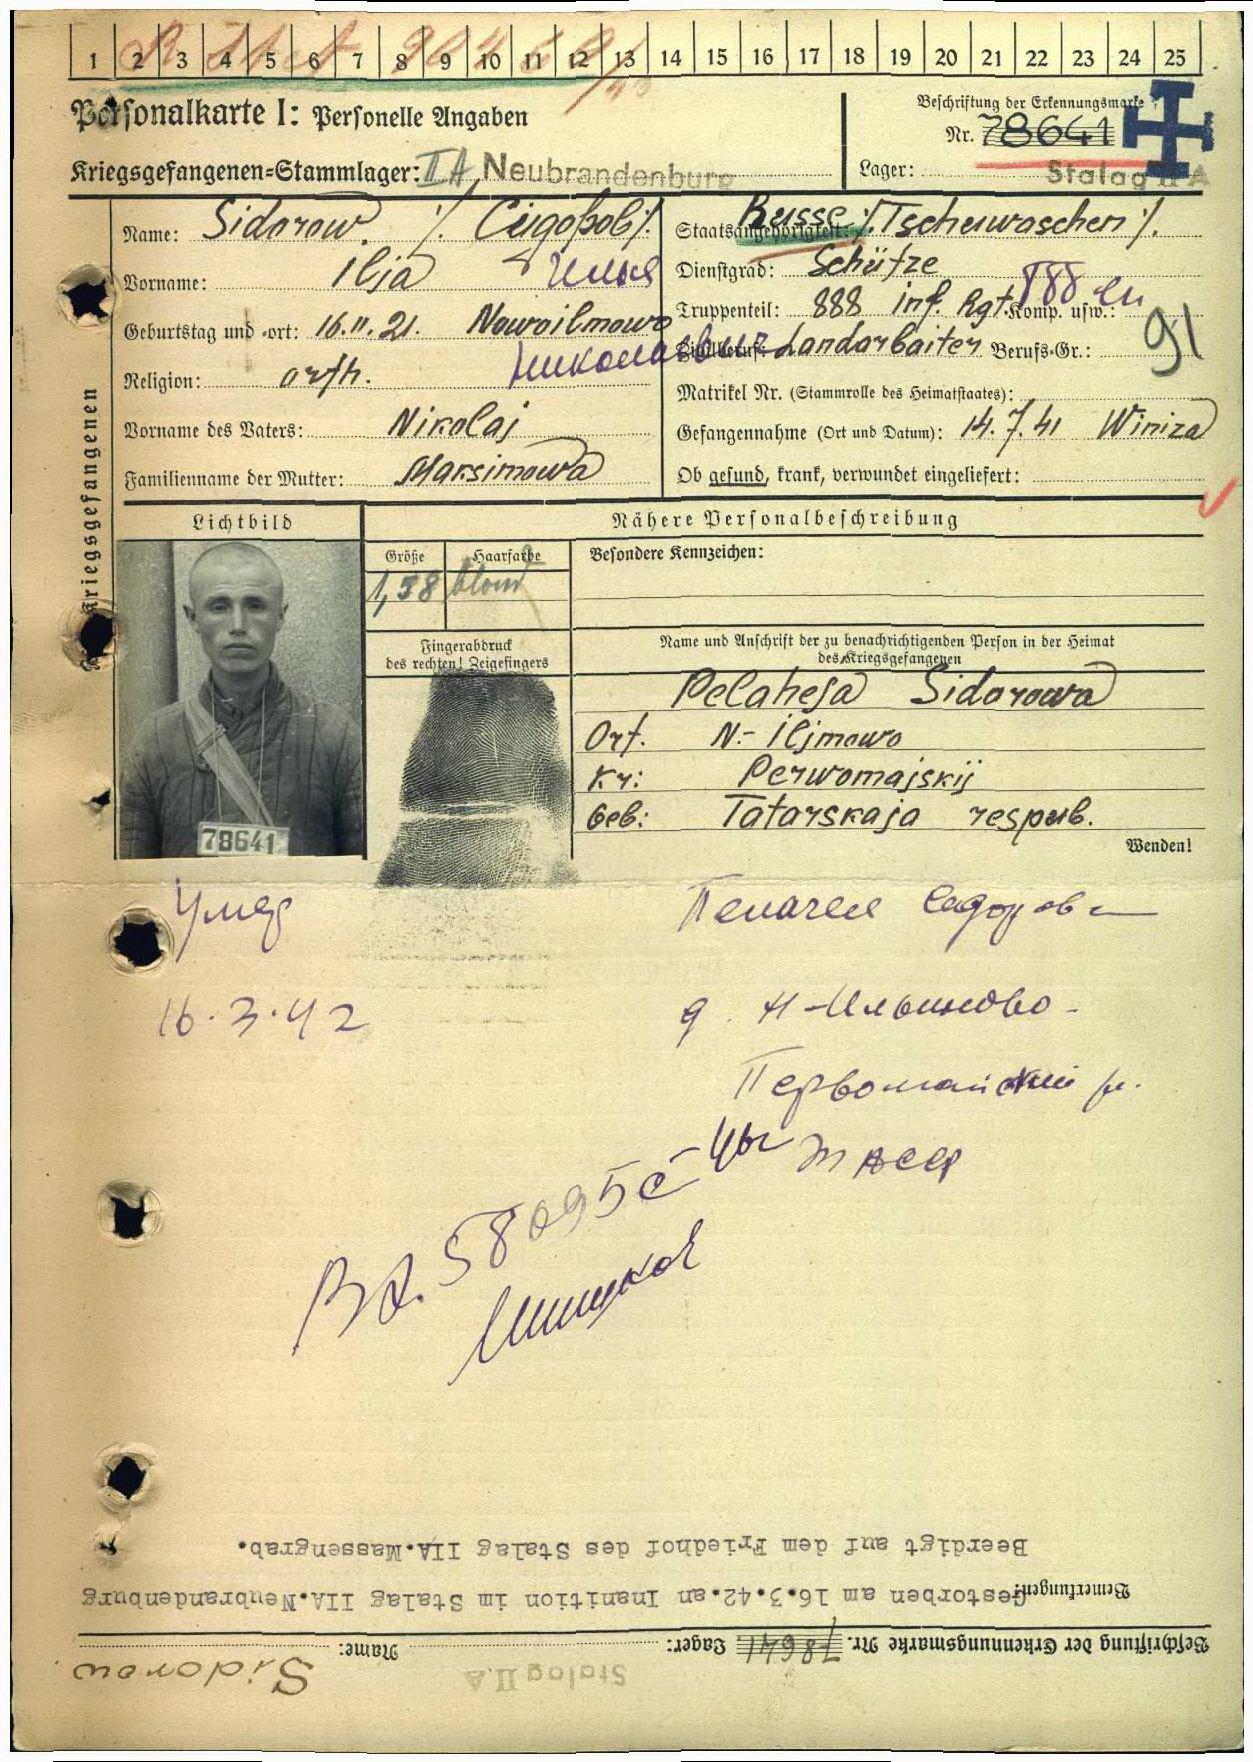 1 2 3 4 5 6 7 8 9 10 11 12 13 14 15 16 17 18 19 20 21 22 23 24 25
Personalkarte I: Personelle Angaben
Beschriftung der Erkennungsmarke
Nr. 78641
Kriegsgefangenen-Stammlager: II A Neubrandenburg
Lager: Stalag II A
des Kriegsgefangenen
Name: Sidorow ./. Сидоров ./.
Vorname: Ilja Илья
Geburtstag und -ort: 16.11.21. Nowoilmowo
Николаевич
Religion: orth.
Vorname des Vaters: Nikolaj
Familienname der Mutter: Maksimowa
Staatsangehörigkeit: Russe ./. Tschuwaschen ./.
Dienstgrad: Schütze
Truppenteil: 888 inf. Rgt. Komp. usw.: 888 сп
Zivilberuf: Landarbaiter Berufs-Gr.: 91
Matrikel Nr. (Stammrolle des Heimatstaates):
Gefangennahme (Ort und Datum): 14.7.41 Winiza
Ob gesund, krank, verwundet eingeliefert:
Lichtbild
Nähere Personalbeschreibung
Größe Haarfarbe
1,58 blond
Besondere Kennzeichen:
Fingerabdruck
des rechten! Zeigefingers
Name und Anschrift der zu benachrichtigenden Person in der Heimat
des Kriegsgefangenen
Pelaheja Sidorowa
Ort. N.- Iljmowo
Kr: Perwomajskij
Geb: Tatarskaja respub.
Wenden!
78641
Умер
16.3.42
Пелагея Сидорова
д. Н-Ильмово
Первомайский р.
ТАССР
58095с
Beerdigt auf dem Friedhof des Stalag IIA.Massengrab.
Bemerkungen: Gestorben am 16.3.42.an Inanition im Stalag IIA.Neubrandenburg
Beschriftung der Erkennungsmarke Nr. 78641 Lager: Stalag II A Name: Sidorow